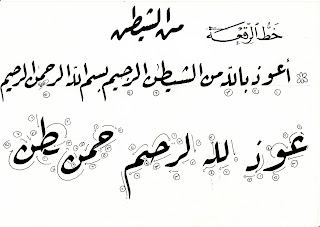 خط الرقعة
من الشيطن
أعوذ بالله من الشيطن الرجيم بسم الله الرحمن الرحيم
عوذ لله لرحيم حمن يطن